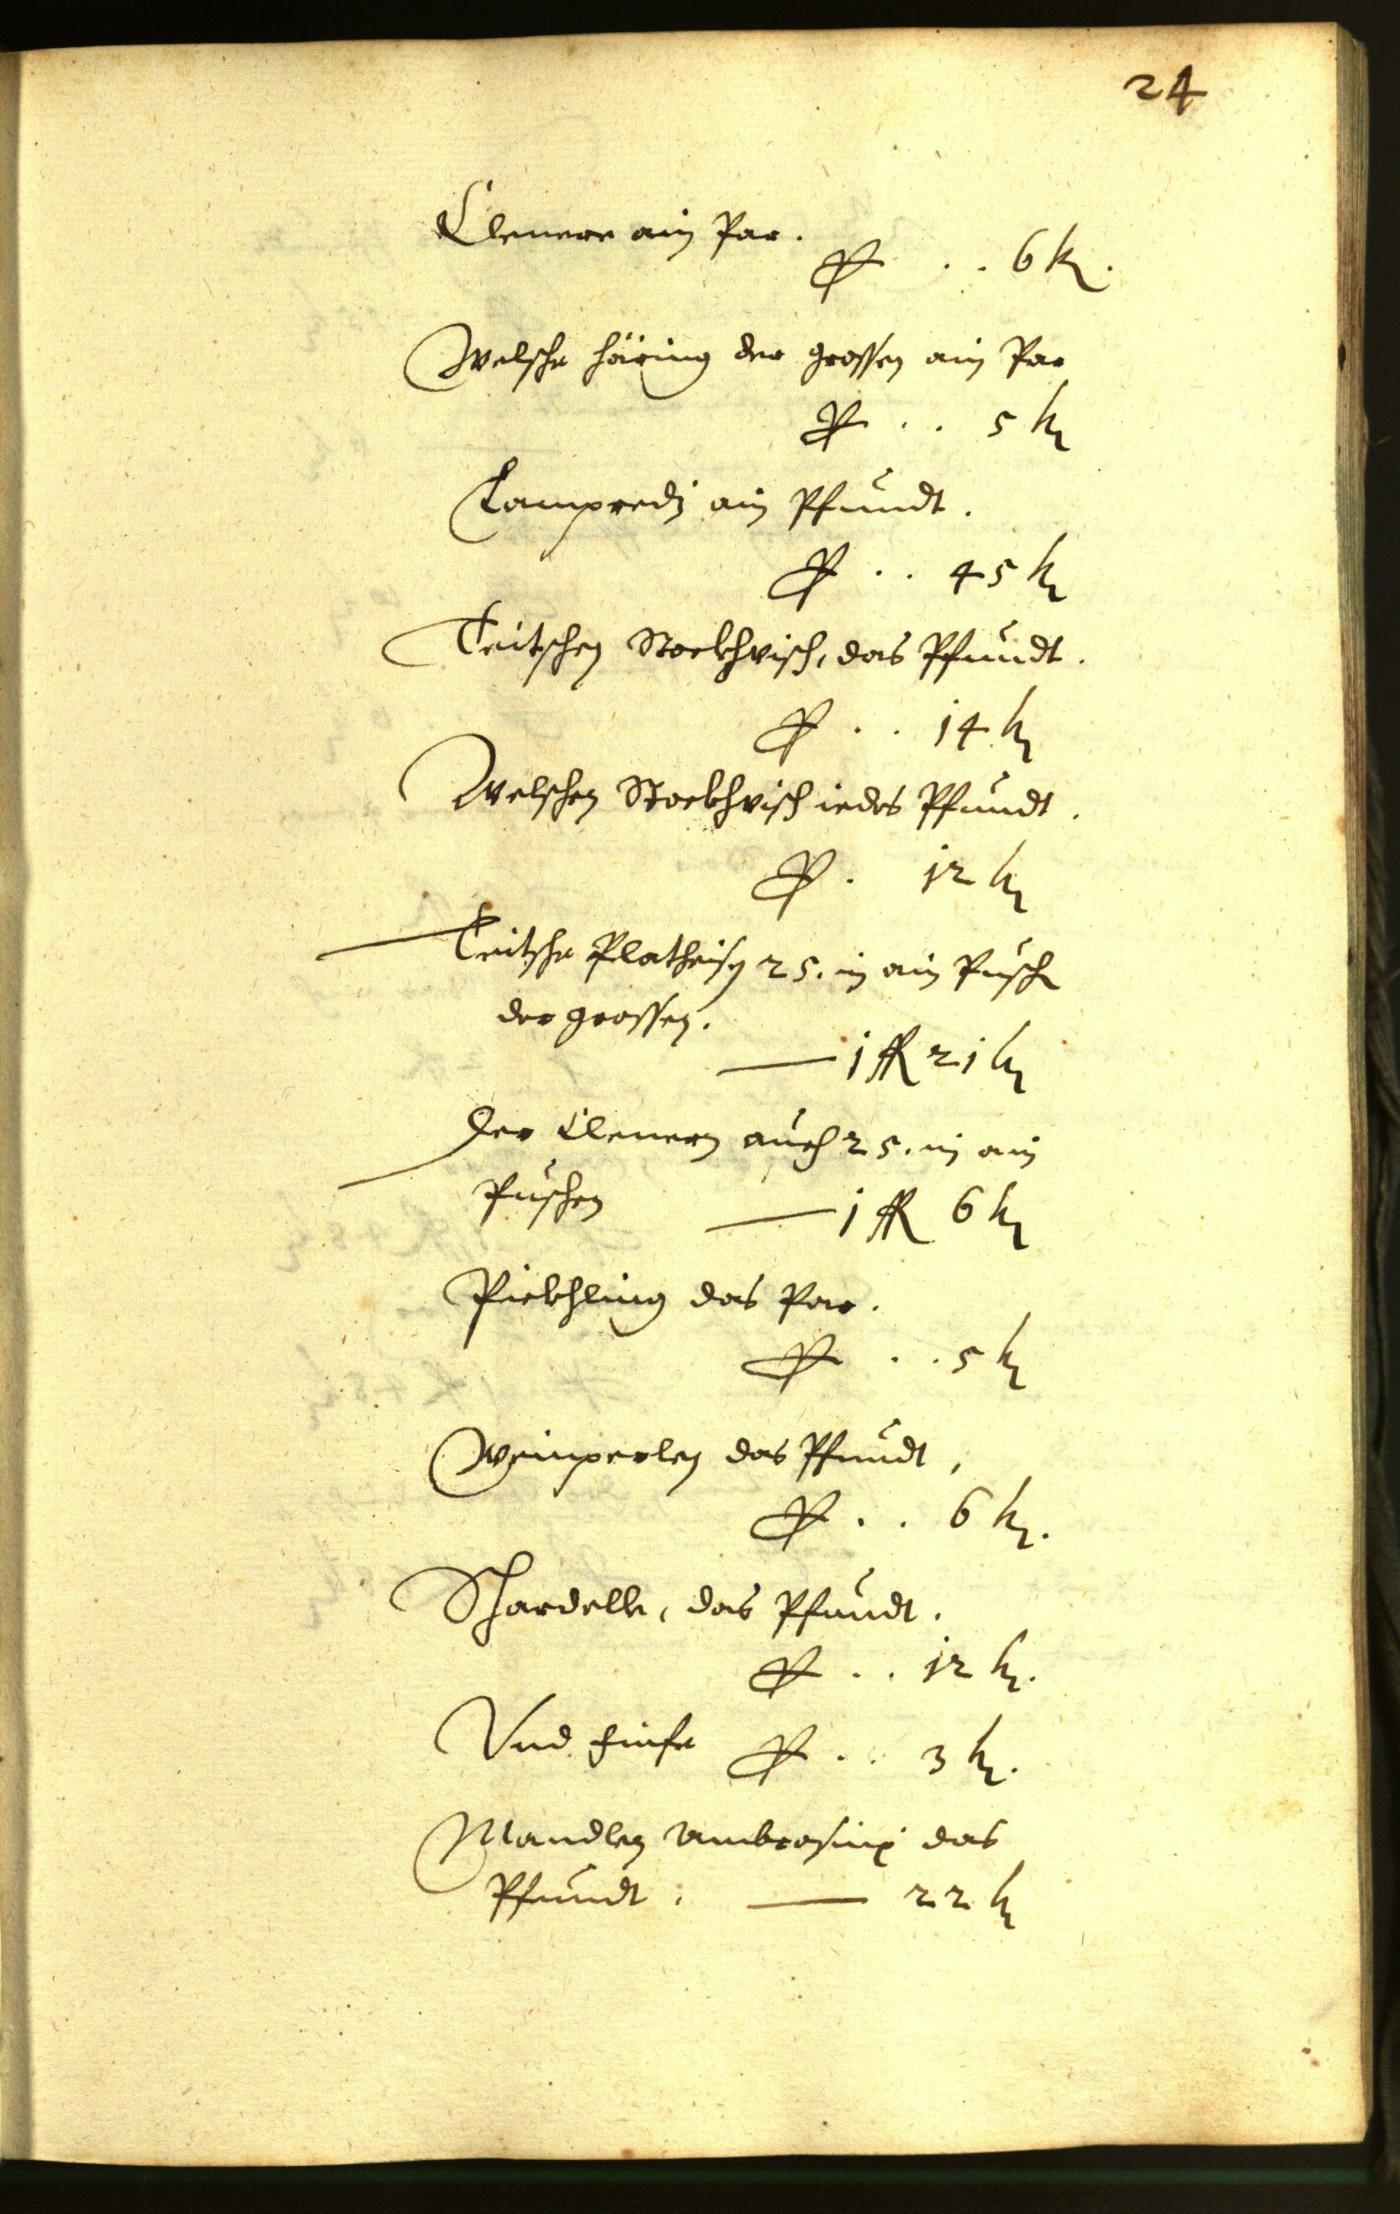 24
Clenere ain Par.
per . . 6 kr.
Welsche Häring der grossen ain Par
per . . 5 kr
Lampredj ain Pfundt.
per . . 45 kr
Teitschen Stockhvisch, das Pfundt.
per . . 14 kr
Welschen Stockhvisch iedes Pfundt.
per . 12 kr
Teitsche Platheisn 25. in ain Pusch
der grossen.
— 1 fl 21 kr
Der Clenern auch 25. in ain
Puschen — 1 fl 6 kr
Pickhling das Par.
per . . 5 kr
Weinperlen das Pfundt,
per . . 6 kr.
Schardelle, das Pfundt.
per . . 12 kr.
Vnd Finfe per . . 3 kr.
Mandlen Ambrosinj das
Pfundt. — 22 kr